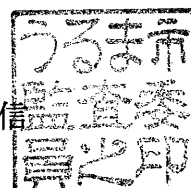 信
うるま市
監査委
員之印